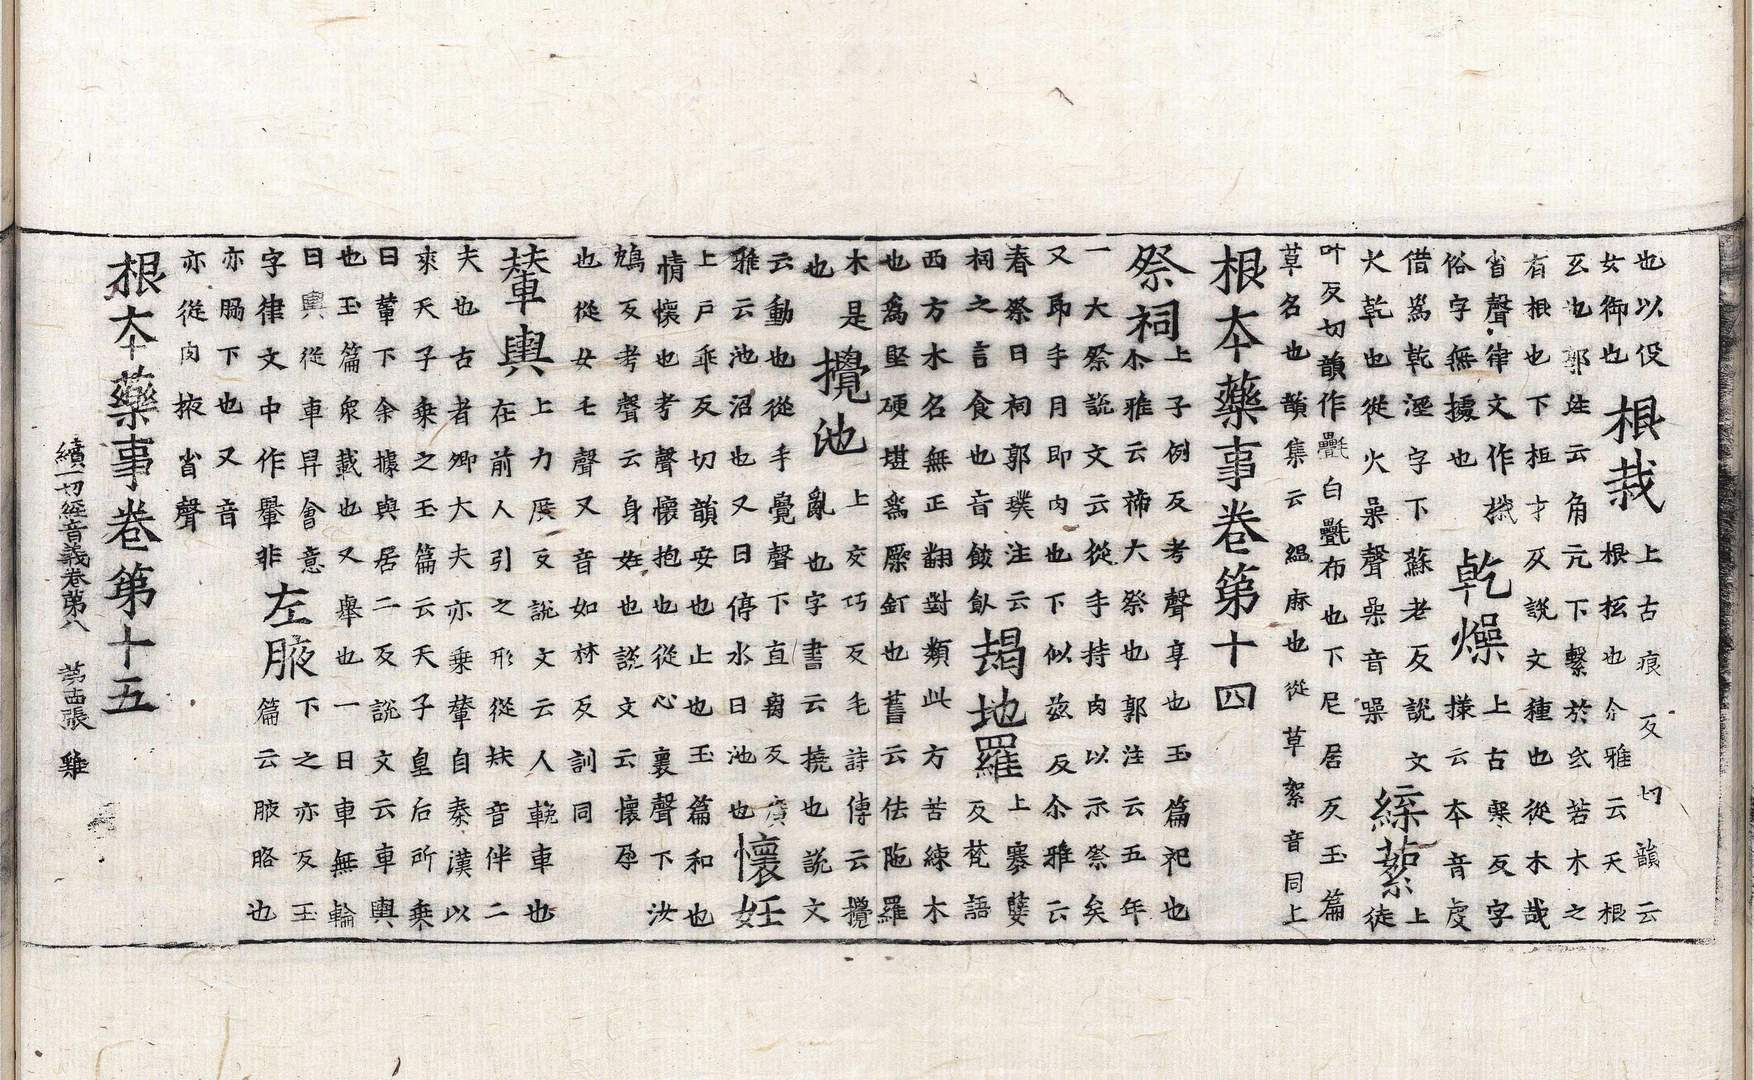 也以伇
女御也
根栽
上古痕反切韻云
根柢也尒雅云天根
互也郭注云角亢下繫於氐若木之
有根也下栽才反説文種也從木𢦏
省聲律文作樴
俗字無據也
乾燥
上古寒反字
樣云本音虔
借爲乾溼字下蘇老反説文
火乾也從火喿聲喿音噪
緤蕠
上
徒
叶反切韻作㲲白㲲布也下尼居反玉篇
草名也韻集云緼麻也從草絮音同上
根本藥事卷第十四
祭祠
上子例反考聲享也玉篇祀也
尒雅云禘大祭也郭注云五年
一大祭説文云從手持肉以示祭矣
又卽手月即肉也下似茲反尒雅云
春祭曰祠郭璞注云
祠之言食也音餕飤
朅地羅
上褰孽
反梵語
西方木名無正翻對類此方苦練木
也爲堅硬堪爲橛釘也舊云佉陁羅
木是
也
攪池
上交巧反毛詩傳云攪
亂也字書云撓也説文
云動也從手覺聲下直离反廣
雅云池沼也又曰停水曰池也
懷妊
上戶乖反切韻安也止也玉篇和也
情懷也考聲懷抱也從心褱聲下汝
鴆反考聲云身姙也説文云懷孕
也從女壬聲又音如林反訓同
輦輿
上力展反説文云人輓車也
在前人引之形從㚘音伴二
夫也古者卿大夫亦乘輦自秦漢以
來天子乘之玉篇云天子皇后所乘
曰輦下余據與居二反説文云車輿
也玉篇衆載也又舉也一曰車無輪
曰輿從車舁會意
字律文中作轝非
左腋
下之亦反玉
篇云腋胳也
亦胳下也又音
亦從肉掖省聲
根本藥事卷第十五
續一切經音義卷第八 第十五張 雞